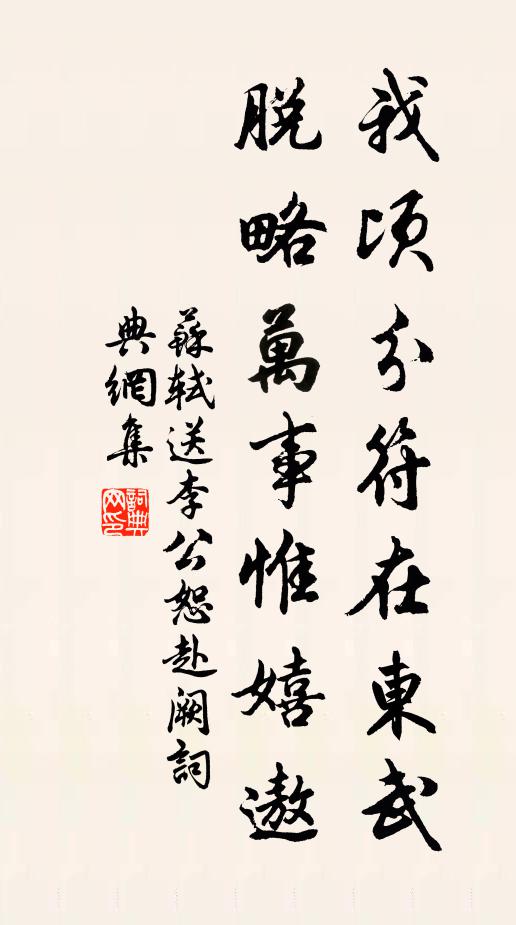 我頃分符在東武
脫略萬事惟嬉遨
蘇軾送李公恕赴闕詞
典網集
詞典網印